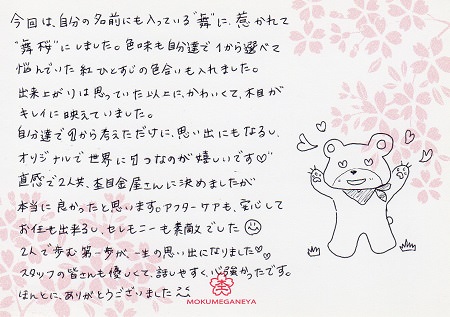 今回は、自分の名前にも入っている"舞"に、惹かれて
"舞桜"にしました。色味も自分達で1から選べて
悩んでいた紅ひとすじの色合いも入れました。
出来上がりは思っていた以上に、かわいくて、木目が
キレイに映えていました。
自分達で1から考えただけに、思い出にもなるし、
オリジナルで世界に1つなのが嬉しいです♡"
直感で2人共、杢目金屋さんに決めましたが
本当に良かったと思います。アフターケアも、安心して
お任せ出来るし、セレモニーも素敵でした
2人で歩む第一歩が、一生の思い出になりました♡♡
スタッフの皆さんも優しくて、話しやすく、心強かったです。
ほんとに、ありがとうございました
MOKUMEGANEYA